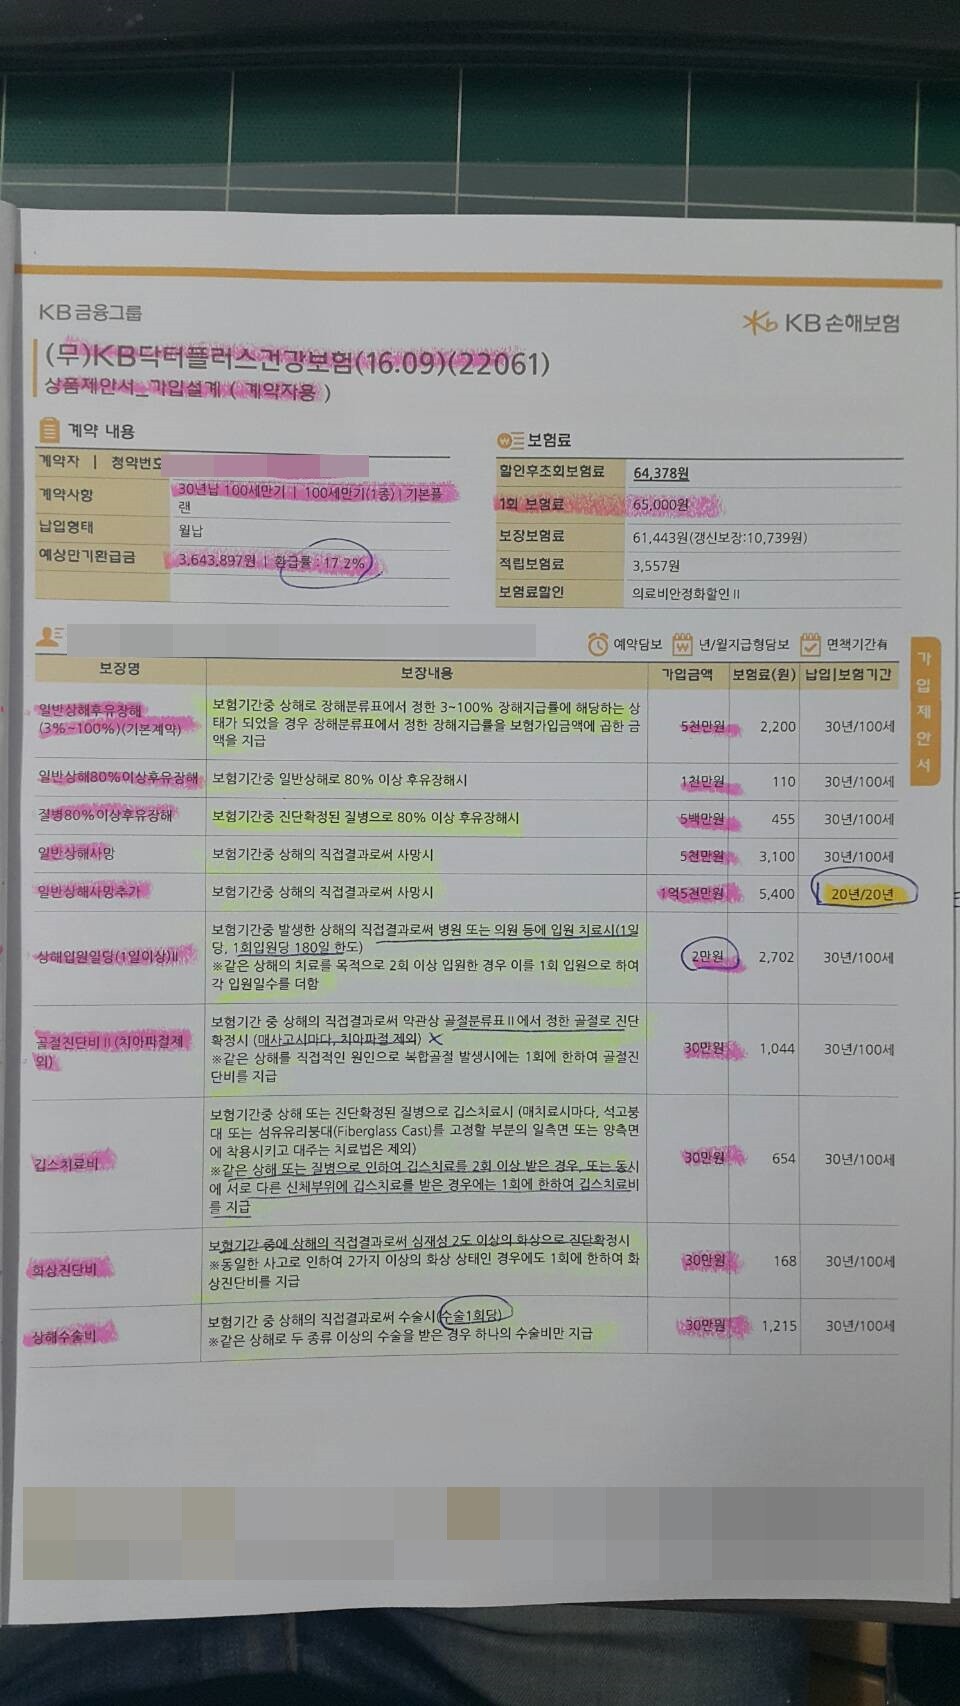 KB금융그룹
KB손해보험
(무)KB닥터플러스건강보험(16.09)(22061)
상품제안서_가입설계 ( 계약자용 )
계약 내용
계약자 | 청약번호
계약사항 30년납 100세만기 | 100세만기(1종) | 기본플
랜
납입형태 월납
예상만기환급금 3,643,897원 | 환급률 : 17.2%
보험료
할인후초회보험료 64,378원
1회 보험료 65,000원
보장보험료 61,443원(갱신보장:10,739원)
적립보험료 3,557원
보험료할인 의료비안정화할인Ⅱ
예약담보 년/월지급형담보 면책기간有
가입제안서
보장명 보장내용 가입금액 보험료(원) 납입|보험기간
일반상해후유장해
(3%~100%)(기본계약)
보험기간중 상해로 장해분류표에서 정한 3~100% 장해지급률에 해당하는 상
태가 되었을 경우 장해분류표에서 정한 장해지급률을 보험가입금액에 곱한 금
액을 지급
5천만원 2,200 30년/100세
일반상해80%이상후유장해 보험기간중 일반상해로 80% 이상 후유장해시 1천만원 110 30년/100세
질병80%이상후유장해 보험기간중 진단확정된 질병으로 80% 이상 후유장해시 5백만원 455 30년/100세
일반상해사망 보험기간중 상해의 직접결과로써 사망시 5천만원 3,100 30년/100세
일반상해사망추가 보험기간중 상해의 직접결과로써 사망시 1억5천만원 5,400 20년/20년
상해입원일당(1일이상)Ⅱ
보험기간중 발생한 상해의 직접결과로써 병원 또는 의원 등에 입원 치료시(1일
당, 1회입원당 180일 한도)
※같은 상해의 치료를 목적으로 2회 이상 입원한 경우 이를 1회 입원으로 하여
각 입원일수를 더함
2만원 2,702 30년/100세
골절진단비Ⅱ(치아파절제
외)
보험기간 중 상해의 직접결과로써 약관상 골절분류표Ⅱ에서 정한 골절로 진단
확정시 (매사고시마다, 치아파절 제외)
※같은 상해를 직접적인 원인으로 복합골절 발생시에는 1회에 한하여 골절진
단비를 지급
30만원 1,044 30년/100세
깁스치료비
보험기간중 상해 또는 진단확정된 질병으로 깁스치료시 (매치료시마다, 석고붕
대 또는 섬유유리붕대(Fiberglass Cast)를 고정할 부분의 일측면 또는 양측면
에 착용시키고 대주는 치료법은 제외)
※같은 상해 또는 질병으로 인하여 깁스치료를 2회 이상 받은 경우, 또는 동시
에 서로 다른 신체부위에 깁스치료를 받은 경우에는 1회에 한하여 깁스치료비
를 지급
30만원 654 30년/100세
화상진단비
보험기간 중에 상해의 직접결과로써 심재성 2도 이상의 화상으로 진단확정시
※동일한 사고로 인하여 2가지 이상의 화상 상태인 경우에도 1회에 한하여 화
상진단비를 지급
30만원 168 30년/100세
상해수술비
보험기간 중 상해의 직접결과로써 수술시(수술1회당)
※같은 상해로 두 종류 이상의 수술을 받은 경우 하나의 수술비만 지급
30만원 1,215 30년/100세